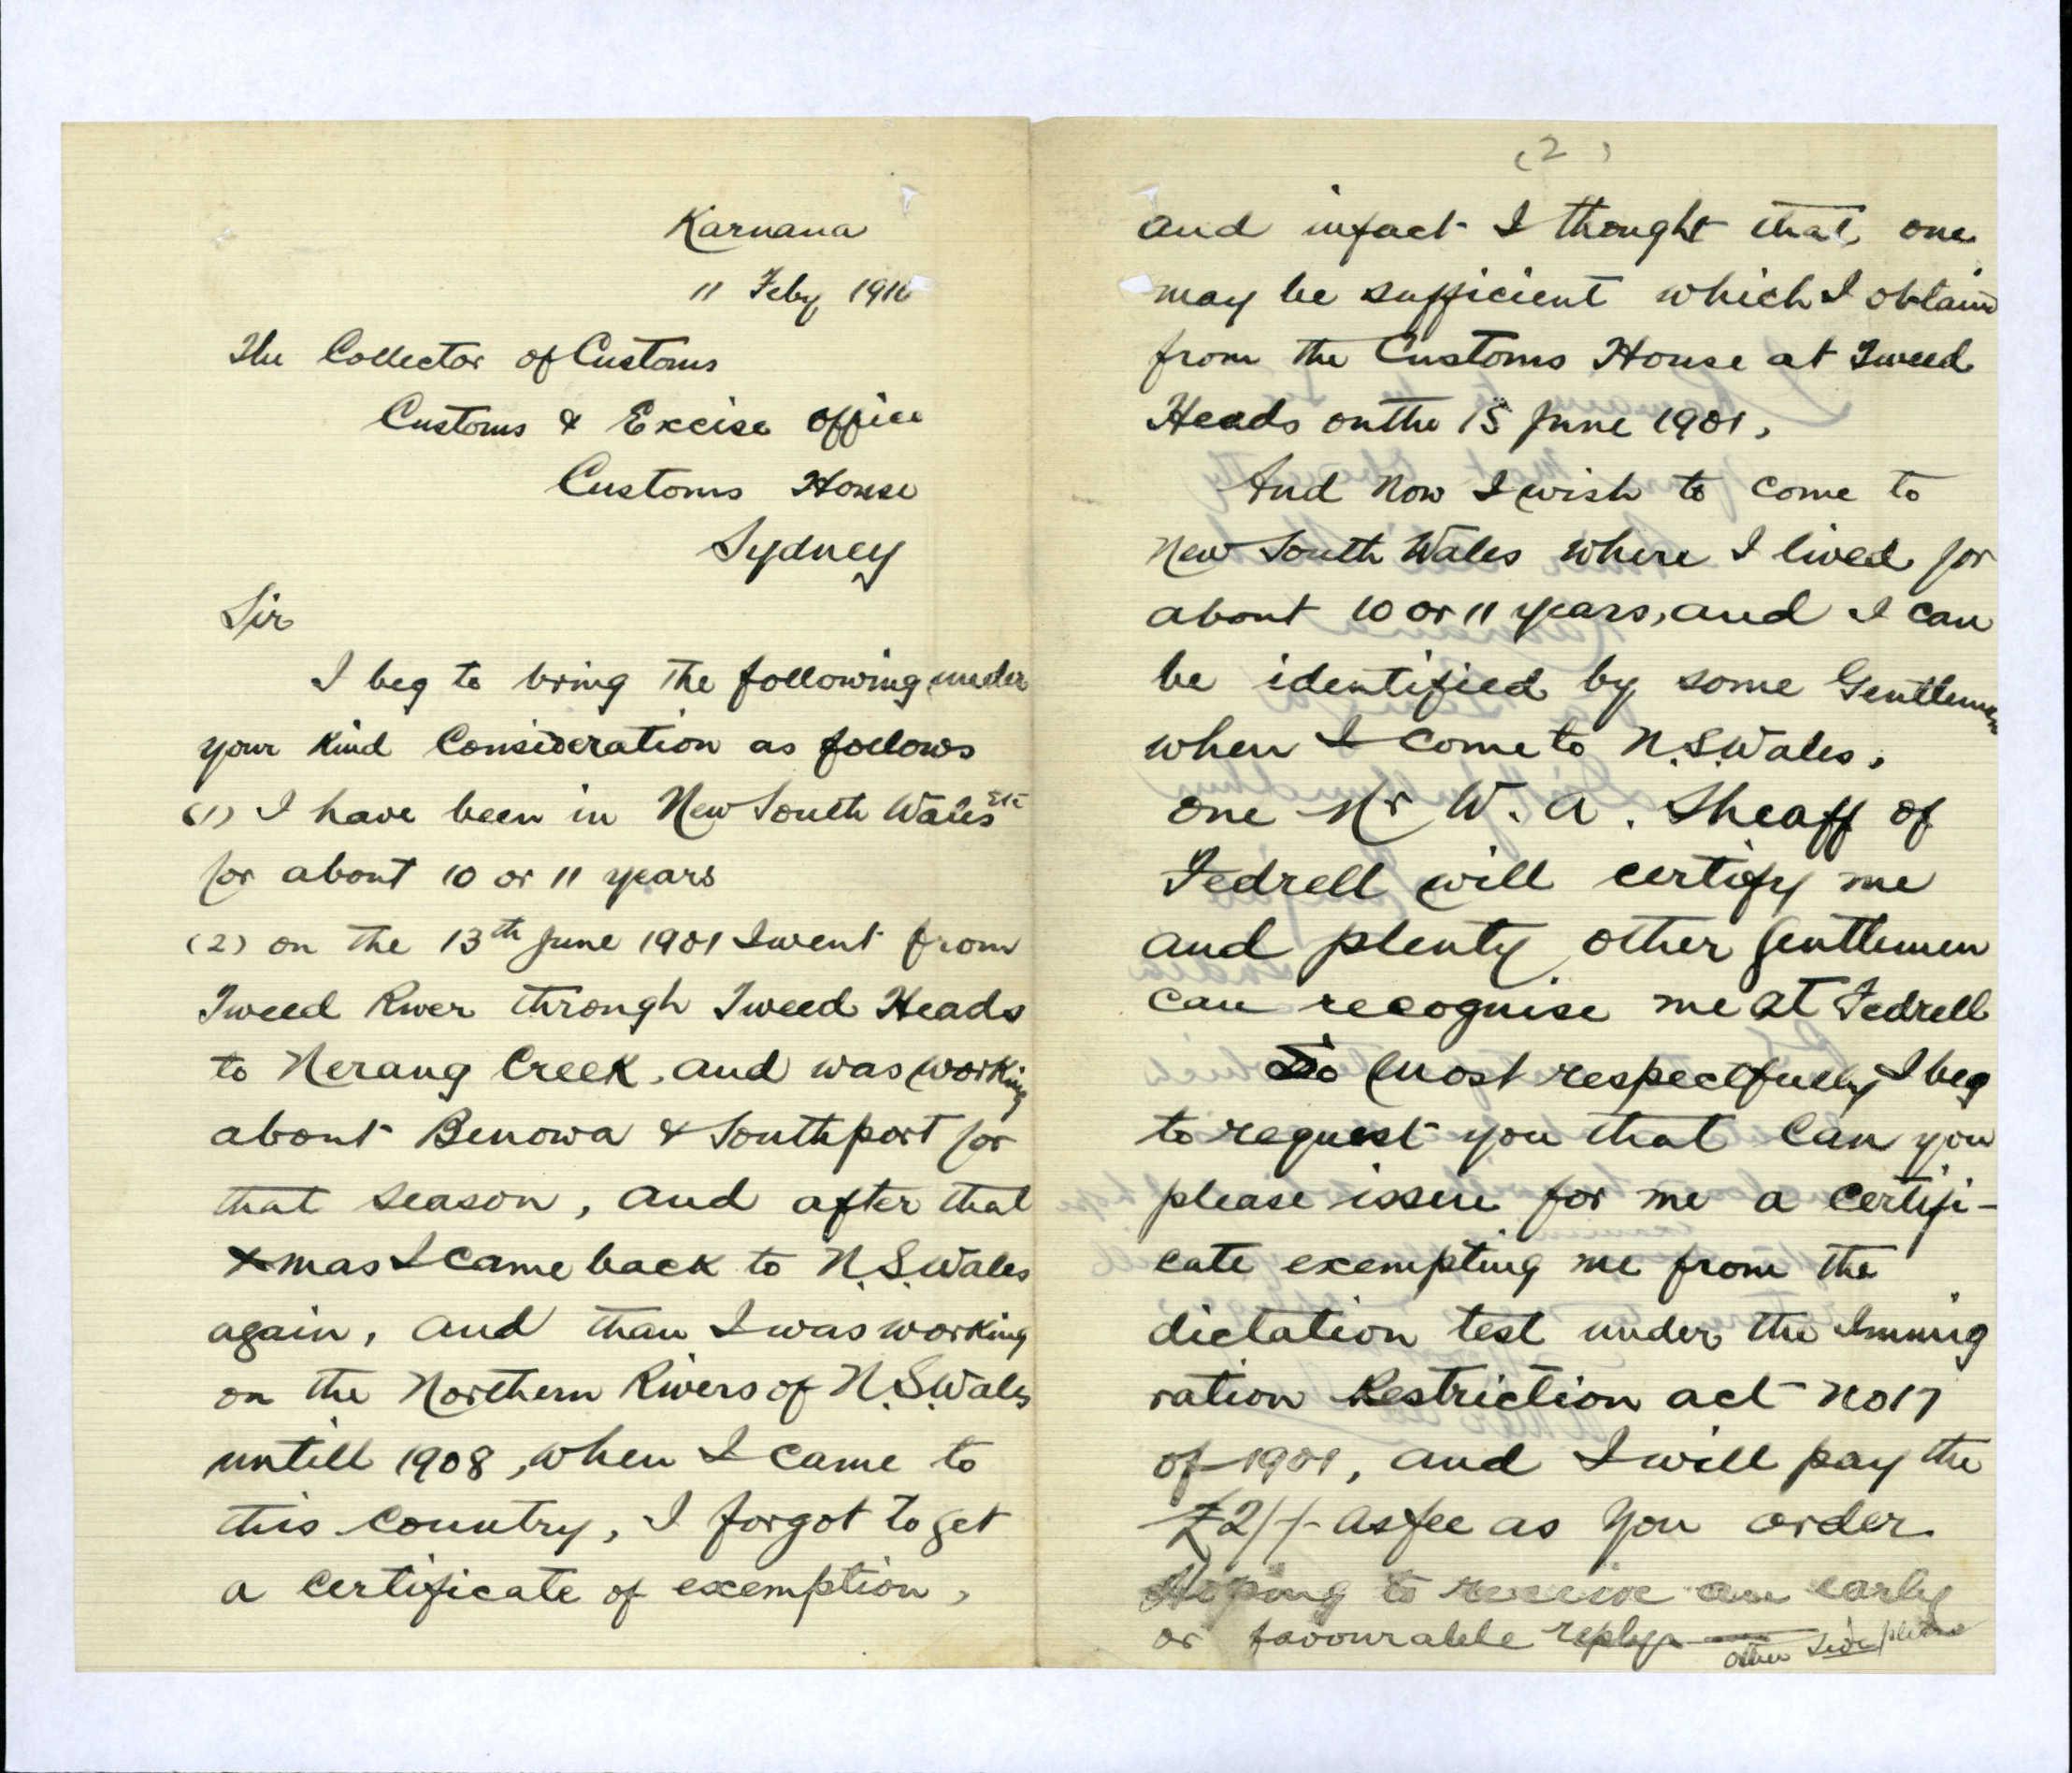 Karnana
11 Feby 1916
The Collector of Customs
Customs & Excise Office
Customs House
Sydney
Sir
I beg to bring the following under
your kind Consideration as follows
(1) I have been in New South Wales etc
for about 10 or 11 years
(2) on the 13th June 1901 I went from
Tweed River through Tweed Heads
to Nerang Creek, and was working
about Benowa & Southport for
that season, and after that
Xmas I came back to N.S.Wales
again, and than I was working
on the Northern Rivers of N.S.Wales
untill 1908, when I came to
this country, I forgot to get
a certificate of exemption,
(2)
and infact I thought that one
may be sufficient which I obtaind
from the Customs House at Tweed
Heads on the 15 June 1901,
And now I wish to come to
New South Wales where I lived for
about 10 or 11 years, and I can
be identified by some Gentlemen
when I come to N.S.Wales,
one Mr W. A. Sheaff of
Tedrell will certify me
and plenty other gentlemen
can recognise me at Tedrell
So most respectfully I beg
to request you that Can you
please issue for me a certifi-
cate exempting me from the
dictation test under the Immig
ration Restriction act No 17
of 1901, and I will pay the
£2/-/- as fee as you order.
Hoping to receive an early
or favourable reply.
other side please